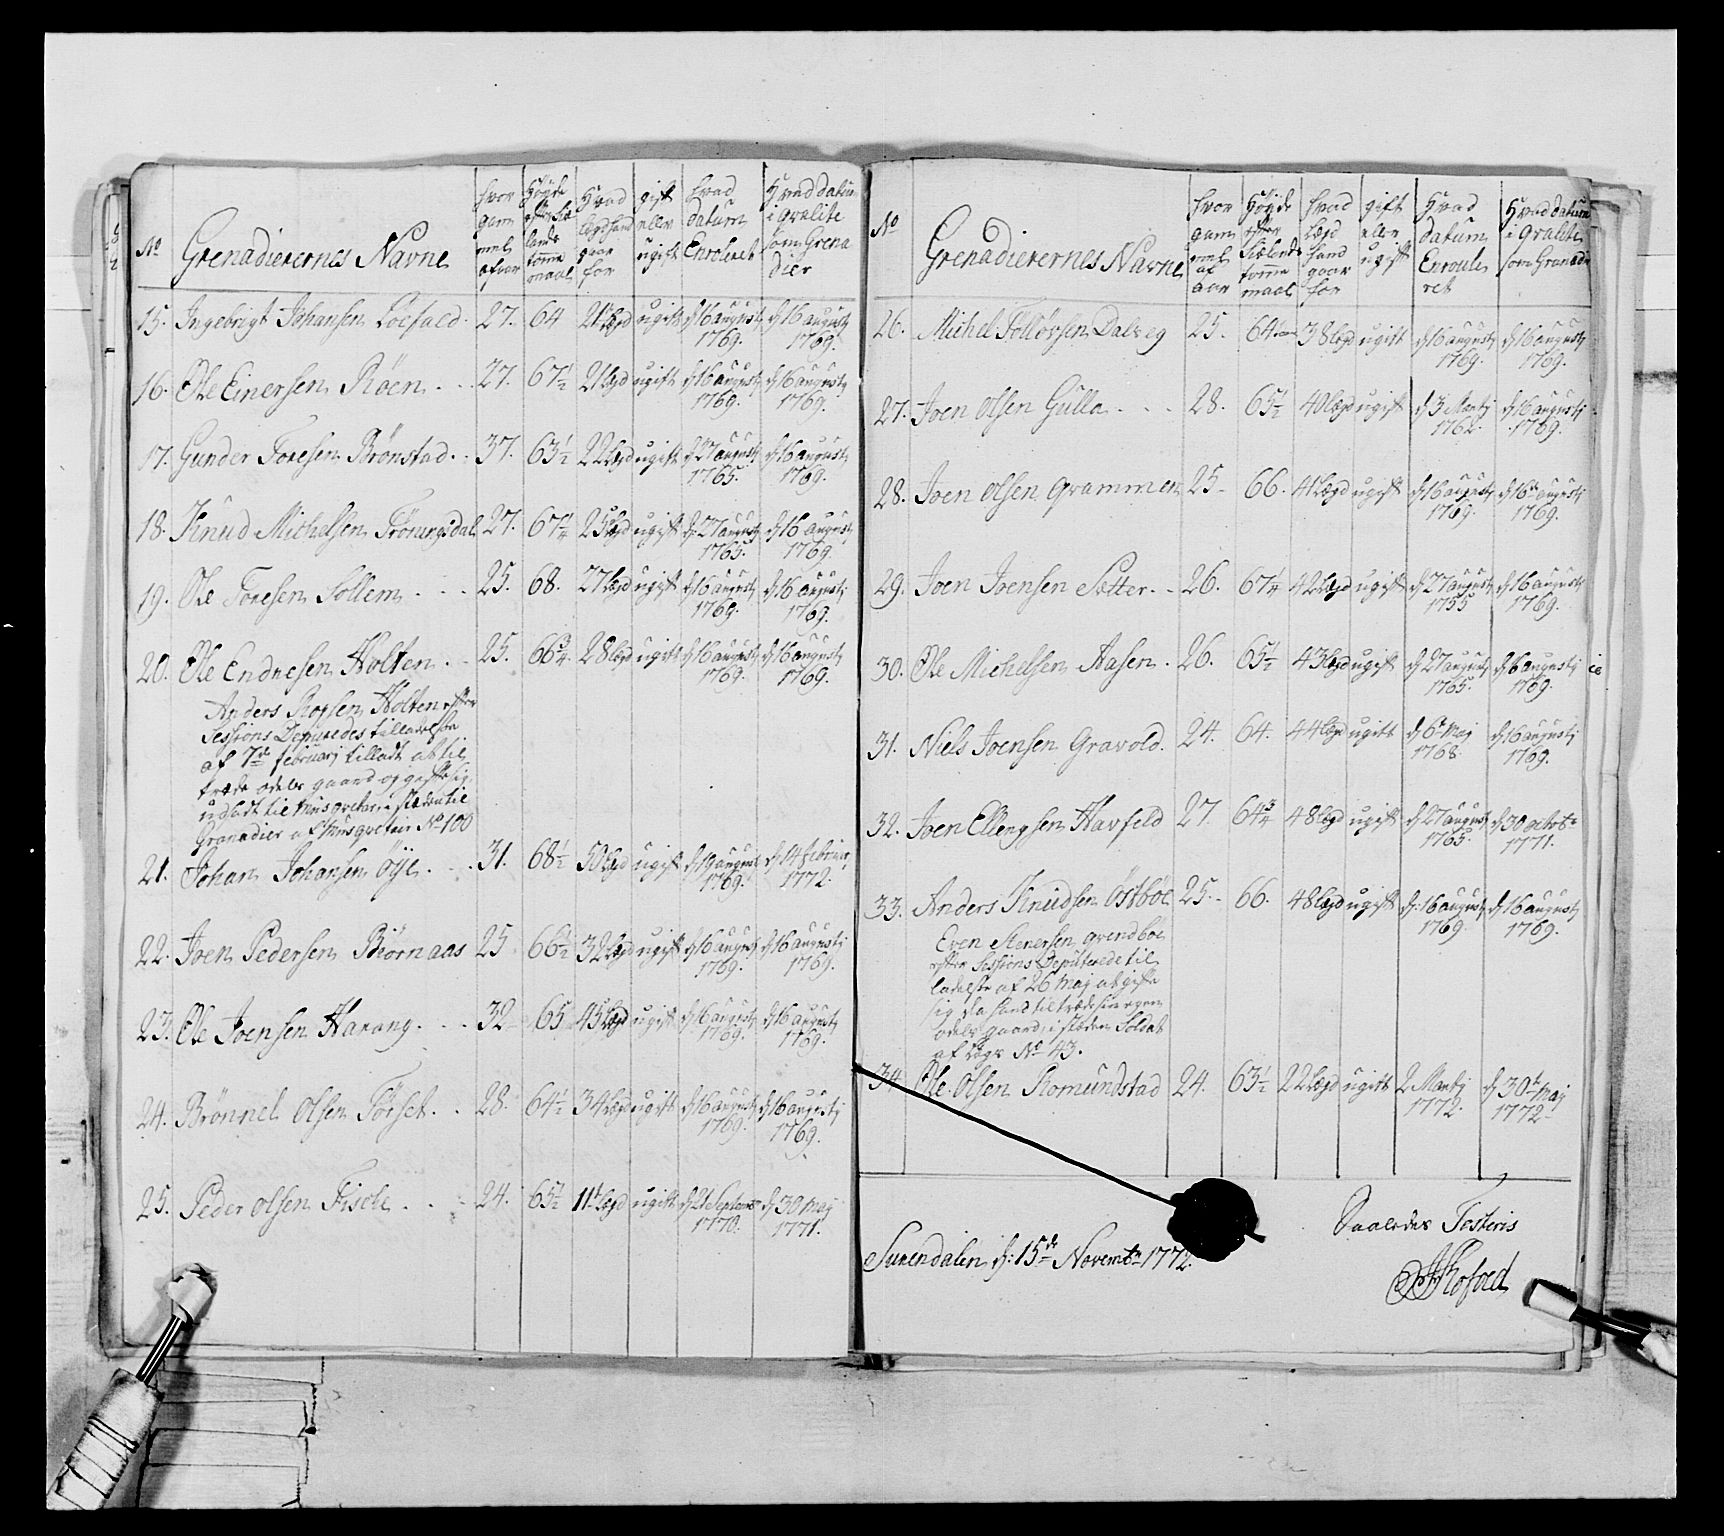 No Grenadierernes Navne hvor gammel af aar Høyde efter Siælands tomme maal Hvad lægd hand gaar for gift eller ugift hvad datum Enroleret Hvad datum i qvalite som Grenadier
15. Ingebrigt Johansen Löefald. 27. 64 21 lægd ugift d 16 augustj 1769. d 16 augustj 1769.
16. Ole Einersen Röen. . . 27. 67½ 21 lægd ugift d 16 augustj 1769. d 16 augustj 1769.
17. Gunder Toresen Brönstad. . 37. 63½ 22 lægd ugift d 27 augustj 1765. d 16 augustj 1769.
18. Knud Michelsen 27. 67¼ 25 lægd ugift d. 27 augustj 1765. d 16 augustj 1769.
19. Ole Toresen Sollem. . . 25. 68. 27 lægd ugift d 16 augustj 1769. d 16 augustj 1769.
20. Ole Endresen Holten. . 25. 66¾. 28 lægd ugift d 16 augustj 1769. d 16 augustj 1769.
Anders Roesen Holten efter
Sessions Deputedes tilladelse
af 7de februarj tilladt at til
træde odels gaard og gifte sig
udsadt til Musqveter, i stæden til
Granadier af Musqveteir No 100
21. Johan Johansen Öye. . . 31. 68½ 50 lægd ugift d 19 augustj 1769. d 14 februar, 1772.
22. Joen Pedersen Biörnaas 25 66½ 32 lægd ugift d 16 augustj 1769. d 16 augustj 1769.
23. Ole Joensen Harang. . . 32 65 45 lægd ugift d 16 augustj 1769. d 16 augustj 1769.
24. Brönnel Olsen Törset. . 28. 64½ 34 lægd ugift d 16 augustj 1769. d 16 augustj 1769.
25. Peder olsen Fiske. . . 24. 65½ 11t lægd ugift d 21 Septemr 1770. d 30 maj 1771.
No Grenadierernes Navne hvor gammel af aar Höyde efter Siælands tomme maal hvad Lægd hand gaar for gift eller ugift Hvad datum Enrouleret Hvad datum i qvalite som Granadir
26. Michel Dalseg 25. 64 38 lægd ugift d 16 augustj 1769. d 16 augustj 1769.
27. Joen olsen Gulla. . . 28. 65½ 40 lægd ugift d 3 Martj 1762. d 16 augustj 1769.
28. Joen olsen qvammen 25. 66. 41 lægd ugift d 16 augustj 1769. d 16 augustj 1769.
29. Joen Joensen Sætter. . 26. 67¼ 42 lægd ugift d 27 augustj 1755 d 16 augustj 1769.
30. Ole Michelsen Aasen. 26. 65½ 43 lægd ugift d 27 augustj 1765. d 16 augustj 1769.
31. Niels Joensen Gravold. 24. 64. 44 lægd ugift d 6t Maj 1768. d 16 augustj 1769.
32. Joen Ellengsen Havfeld 27. 64¾ 48 lægd ugift d 27 augustj 1765. d 30 octobr 1771.
33. Anders Knudsen Östböe 25. 66. 48 lægd ugift d. 16 augustj 1769. d 16 augustj 1769.
Even Stenersen qvendböe
efter Sessions Deputerede til
ladelse af 26 Maj at gifte
sig da hand tiltræde sin egen
odels gaard, i stæden Soldat
af Lægs No 43.
34 Ole Olsen Romundstad 24. 63½ 22 lægd ugift 2 Martj 1772. d 30t Maj 1772
Surendalen d: 15de Novembr 1772.
Saaledes Testeris
Kofoed